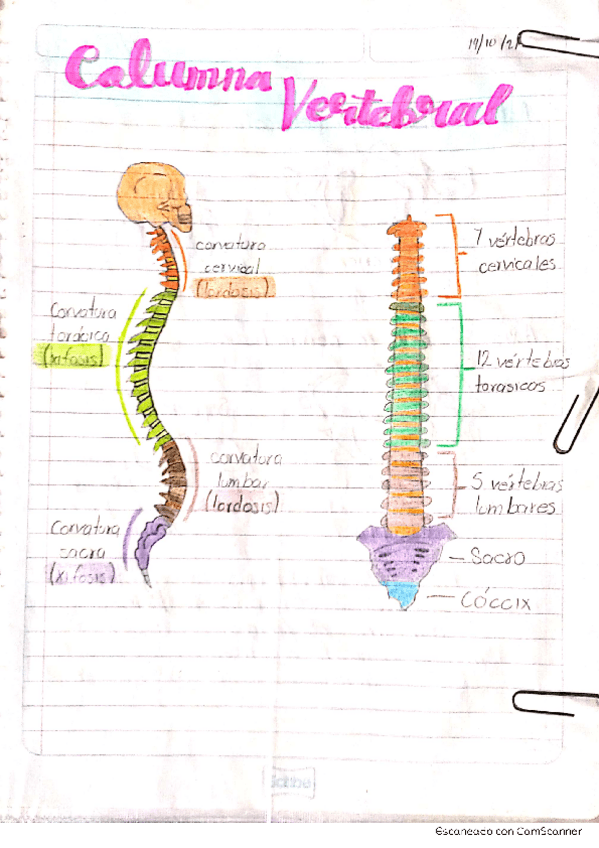 19/10/21
Columna
Vertebral
corvatura
cervical
(lordosis)
Corvatura
torácica
(xifosis)
corvatura
lumbar
(lordosis)
Corvatura
sacra
(xifosis)
7 vértebras
cervicales
12 vértebras
torasicas
5 vértebras
lumbares
Sacro
Cóccix
Scribe
Escaneado con CamScanner